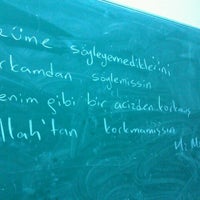 züme söyleyemediklerini
rkamdan söylemissin
enim gibi bir acizden korkmuş
llah'tan korkmamışsın